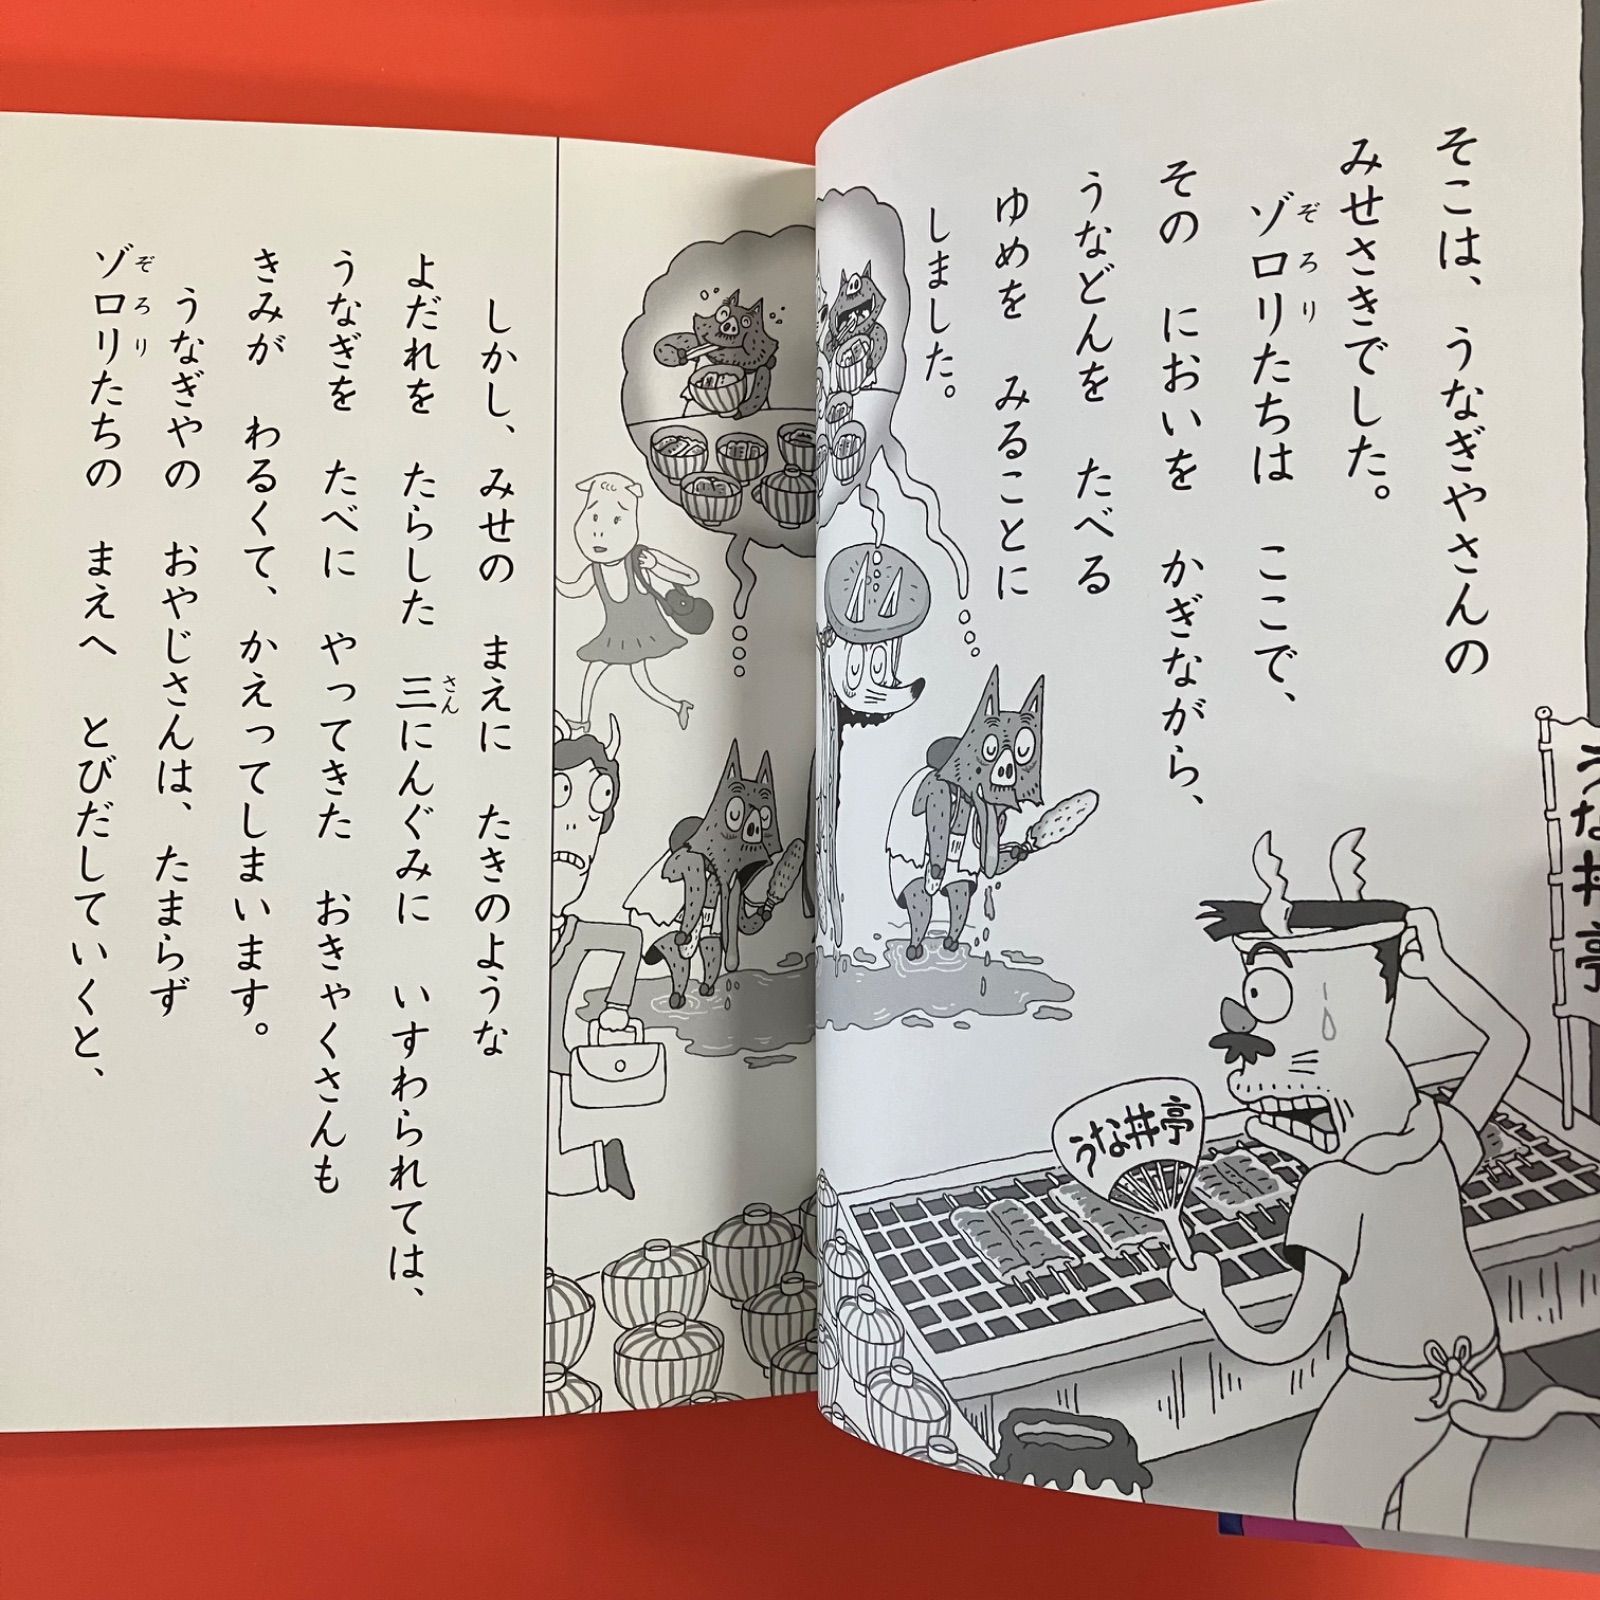 そこは、うなぎやさんの
みせさきでした。
ゾロリたちは ここで、
ぞろり
その においを かぎながら、
うなどんを たべる
ゆめを みることに
しました。
うな丼亭
うな丼亭
しかし、みせの まえに たきのような
よだれを たらした 三にんぐみに いすわられては、
さん
うなぎを たべに やってきた おきゃくさんも
きみが わるくて、かえってしまいます。
うなぎやの おやじさんは、たまらず
ゾロリたちの まえへ とびだしていくと、
ぞろり